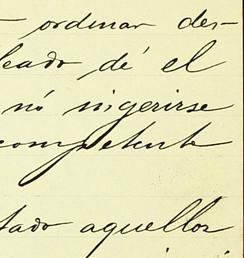 – ordenar des-
leado dé el
nó ingerirse
competente
tado aquellos